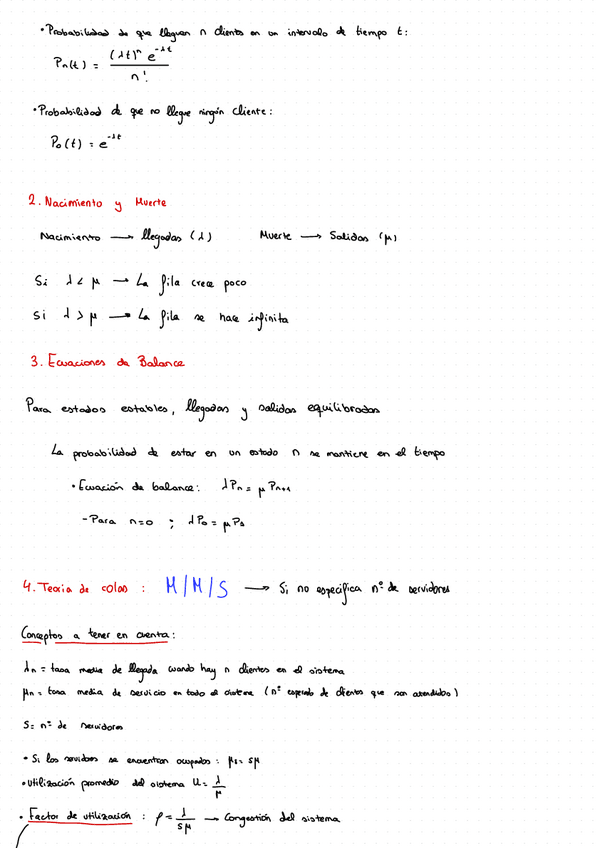 • Probabilidad de que lleguen n clientes en un intervalo de tiempo t:
Pn(t) = (λt)^n e^-λt / n!
• Probabilidad de que no llegue ningún cliente:
P0(t) = e^-λt
2. Nacimiento y Muerte
Nacimiento → llegadas (λ) Muerte → Salidas (μ)
Si λ < μ → La fila crece poco
Si λ > μ → La fila se hace infinita
3. Ecuaciones de Balance
Para estados estables, llegadas y salidas equilibradas
La probabilidad de estar en un estado n se mantiene en el tiempo
• Ecuación de balance: λPn = μPn+1
- Para n=0 ; λP0 = μP1
4. Teoria de colas : M/M/S → Si no especifica nº de servidores
Conceptos a tener en cuenta:
λn = tasa media de llegada cuando hay n clientes en el sistema
μn = tasa media de servicio en todo el sistema (nº esperado de clientes que son atendidos)
S = nº de servidores
• Si los servidores se encuentran ocupados : μs = sμ
• Utilización promedio del sistema U = λ/μ
• Factor de utilización : ρ = λ/sμ → Congestión del sistema